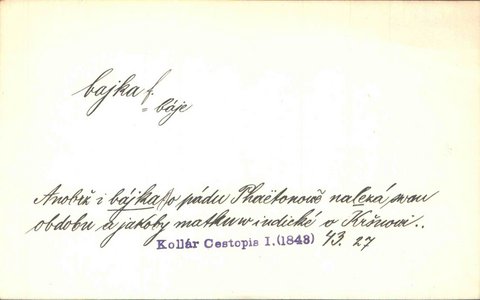 bajka f.
= báje
Anobrž i bájka o pádu Phaëtonově nalezá svou
obdobu a jakoby matku w indické o Kršnowi..
Kollár Cestopis I. (1843) 43. 27